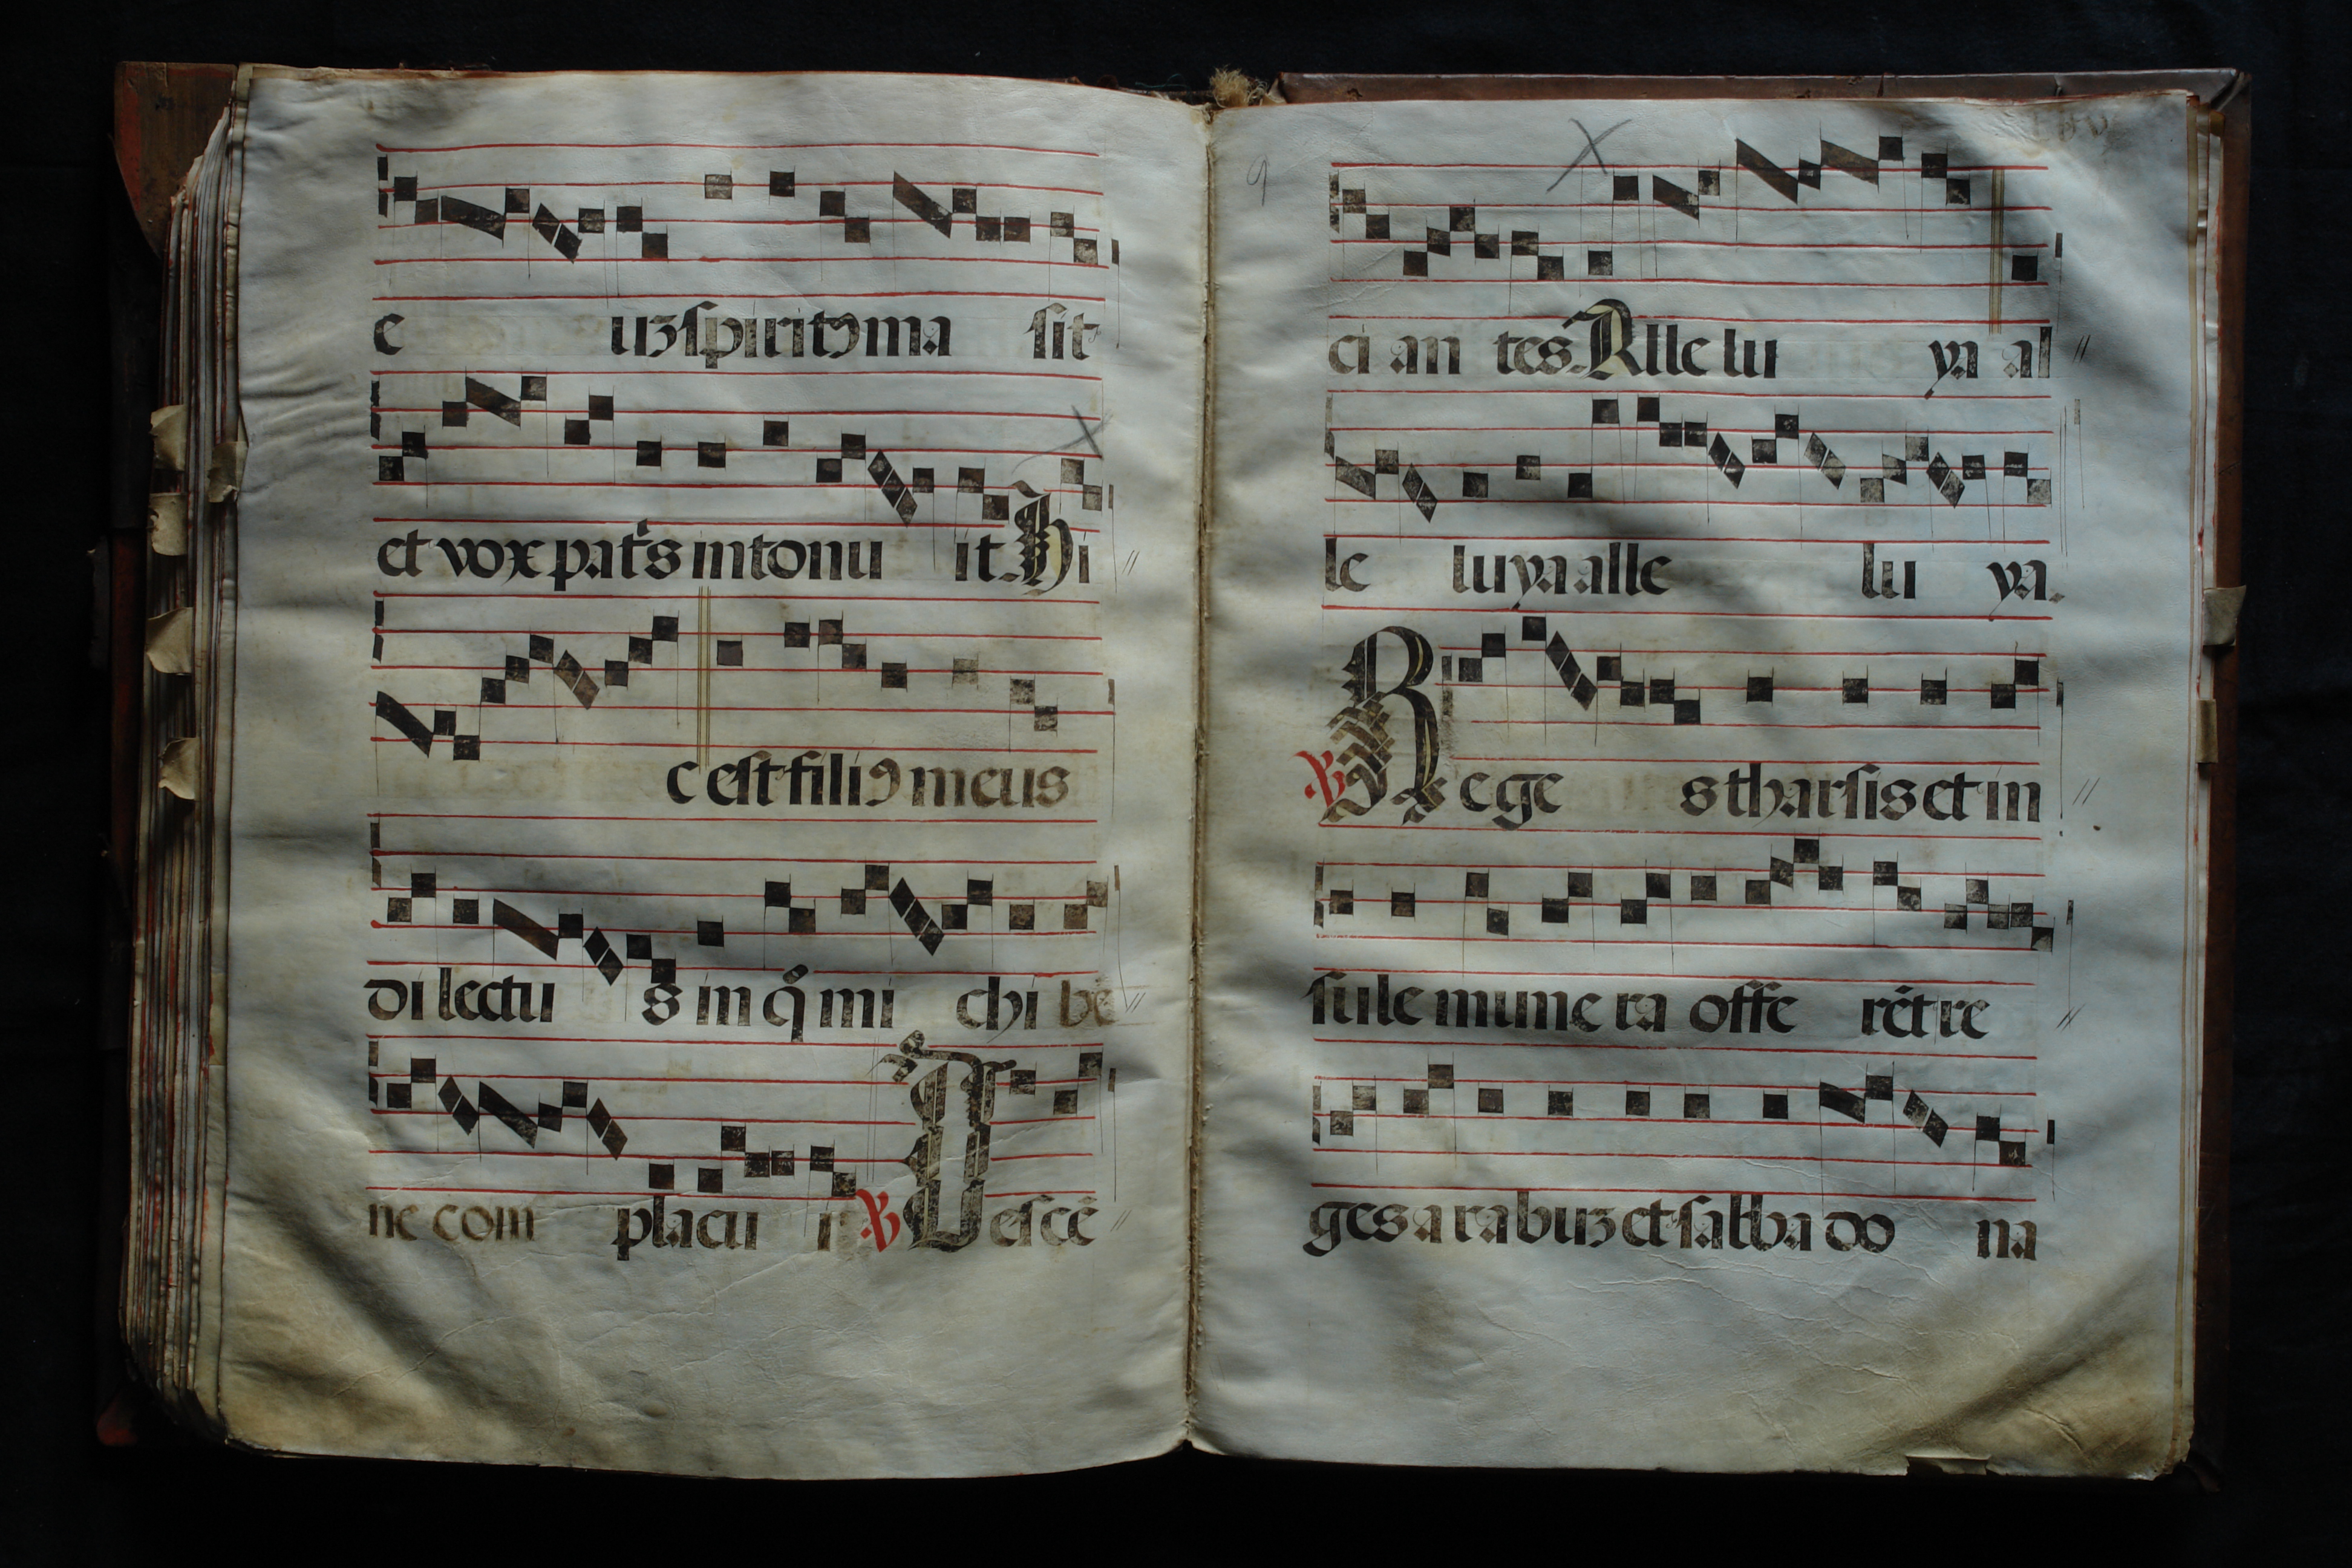 e uʒ ſpiritꝰ ma ſit
et vox patr̄s intonu it. Hi
c eſt filiꝰ meus
di lectu s in q̊ mi chi bē
ne com placu i ℟ Deſcē
9
ci an tes. Alle lu ya al
le lu ya alle lu ya.
℣ Rege s tharſis et in
ſule mune ra offe rēt re
ges arabuʒ et ſabba do na